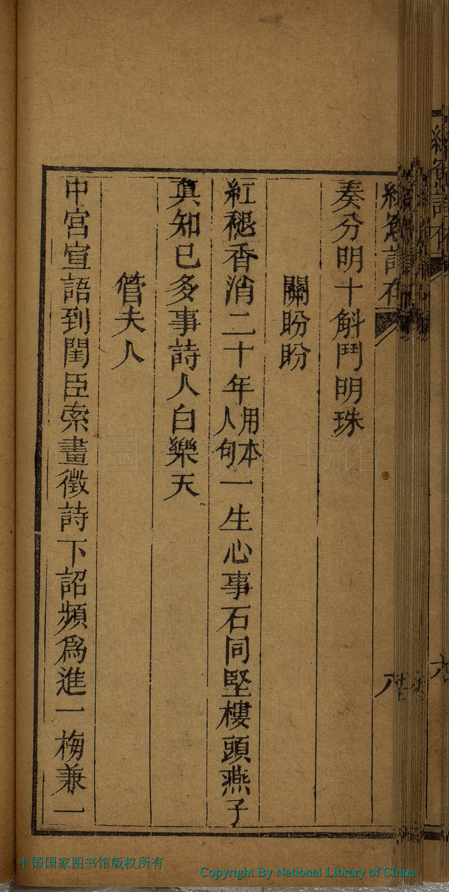 奏分明十斛鬥明珠
關盼盼
紅褪香消二十年用本人句一生心事石同堅樓頭燕子
真知已多事詩人白樂天
管夫人
中宮宣語到閨臣索畫徵詩下詔頻爲進一梅兼一
中国国家图书馆版权所有
Copyright By National Library of China